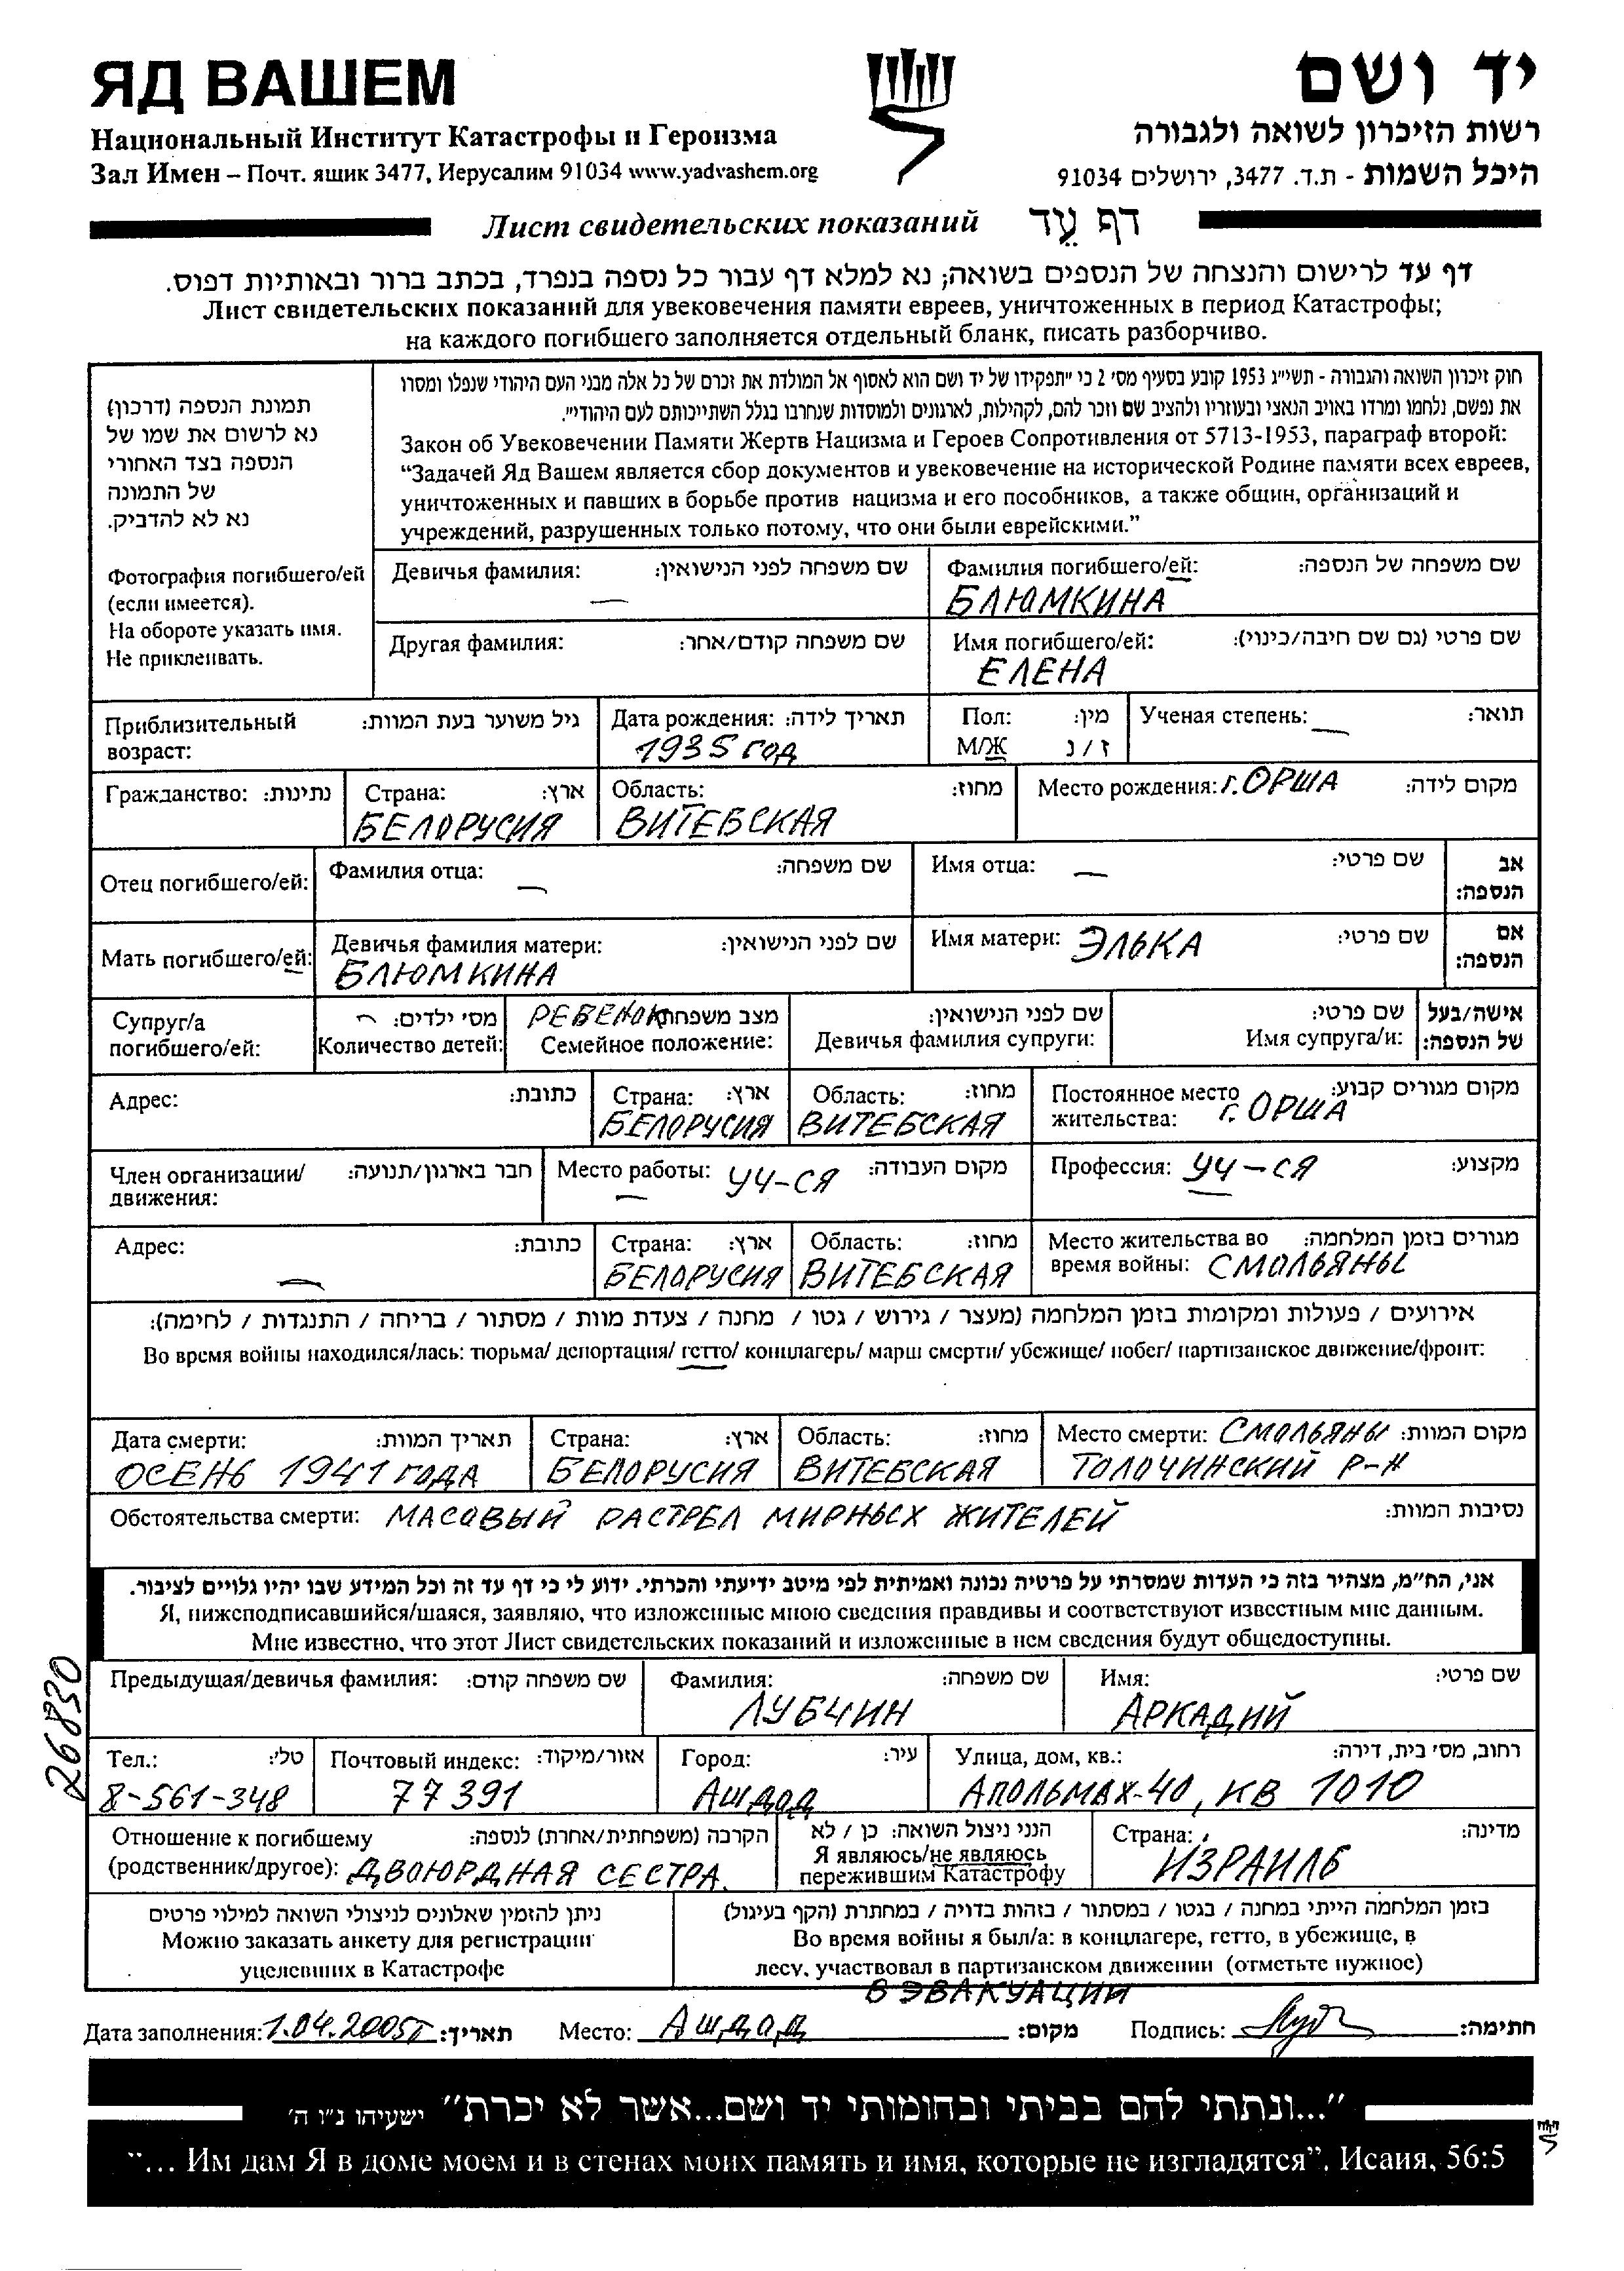 ЯД ВАШЕМ
יד ושם
Национальный Институт Катастрофы и Героизма
רשות הזיכרון לשואה ולגבורה
Зал Имен – Почт. ящик 3477, Иерусалим 91034 www.yadvashem.org
היכל השמות - ת.ד. 3477, ירושלים 91034
Лист свидетельских показаний דף עֵד
דף עד לרישום והנצחה של הנספים בשואה; נא למלא דף עבור כל נספה בנפרד, בכתב ברור ובאותיות דפוס.
Лист свидетельских показаний для увековечения памяти евреев, уничтоженных в период Катастрофы;
на каждого погибшего заполняется отдельный бланк, писать разборчиво.
תמונת הנספה (דרכון)
נא לרשום את שמו של
הנספה בצד האחורי
של התמונה
נא לא להדביק.
Фотография погибшего/ей
(если имеется).
На обороте указать имя.
Не приклеивать.
חוק זיכרון השואה והגבורה - תשי״ג 1953 קובע בסעיף מס׳ 2 כי ״תפקידו של יד ושם הוא לאסוף אל המולדת את זכרם של כל אלה מבני העם היהודי שנפלו ומסרו
את נפשם, נלחמו ומרדו באויב הנאצי ובעוזריו ולהציב שם וזכר להם, לקהילות, לארגונים ולמוסדות שנחרבו בגלל השתייכותם לעם היהודי״.
Закон об Увековечении Памяти Жертв Нацизма и Героев Сопротивления от 5713-1953, параграф второй:
“Задачей Яд Вашем является сбор документов и увековечение на исторической Родине памяти всех евреев,
уничтоженных и павших в борьбе против нацизма и его пособников, а также общин, организаций и
учреждений, разрушенных только потому, что они были еврейскими.”
Девичья фамилия: שם משפחה לפני הנישואין:
—
Фамилия погибшего/ей: שם משפחה של הנספה:
БЛЮМКИНА
Другая фамилия: שם משפחה קודם/אחר:
Имя погибшего/ей: שם פרטי (גם שם חיבה/כינוי):
ЕЛЕНА
Приблизительный גיל משוער בעת המוות:
возраст:
Дата рождения: תאריך לידה:
1935 ГОД
Пол: מין:
М/Ж ז / נ
Ученая степень: — תואר:
Гражданство: נתינות:
Страна: ארץ:
БЕЛОРУСИЯ
Область: מחוז:
ВИТЕБСКАЯ
Место рождения: г. ОРША מקום לידה:
Отец погибшего/ей:
Фамилия отца: — שם משפחה:
Имя отца: — שם פרטי:
אב
הנספה:
Мать погибшего/ей:
Девичья фамилия матери: שם לפני הנישואין:
БЛЮМКИНА
Имя матери: ЭЛЬКА שם פרטי:
אם
הנספה:
Супруг/а
погибшего/ей:
— מס׳ ילדים:
Количество детей:
РЕБЕНОК מצב משפחתי:
Семейное положение:
שם לפני הנישואין:
Девичья фамилия супруги:
שם פרטי:
Имя супруга/и:
אישה/בעל
של הנספה:
Адрес: כתובת:
Страна: ארץ:
БЕЛОРУСИЯ
Область: מחוז:
ВИТЕБСКАЯ
Постоянное место מקום מגורים קבוע:
жительства: г. ОРША
Член организации/ חבר בארגון/תנועה:
движения:
Место работы: УЧ-СЯ מקום העבודה:
—
Профессия: УЧ-СЯ מקצוע:
Адрес: כתובת:
—
Страна: ארץ:
БЕЛОРУСИЯ
Область: מחוז:
ВИТЕБСКАЯ
Место жительства во מגורים בזמן המלחמה:
время войны: СМОЛЬЯНЫ
אירועים / פעולות ומקומות בזמן המלחמה (מעצר / גירוש / גטו / מחנה / צעדת מוות / מסתור / בריחה / התנגדות / לחימה):
Во время войны находился/лась: тюрьма/ депортация/ гетто/ концлагерь/ марш смерти/ убежище/ побег/ партизанское движение/фронт:
Дата смерти: תאריך המוות:
ОСЕНЬ 1941 ГОДА
Страна: ארץ:
БЕЛОРУСИЯ
Область: מחוז:
ВИТЕБСКАЯ
Место смерти: СМОЛЬЯНЫ מקום המוות:
ТОЛОЧИНСКИЙ Р-Н
Обстоятельства смерти: МАСОВЫЙ РАСТРЕЛ МИРНЫХ ЖИТЕЛЕЙ נסיבות המוות:
אני, הח״מ, מצהיר בזה כי העדות שמסרתי על פרטיה נכונה ואמיתית לפי מיטב ידיעתי והכרתי. ידוע לי כי דף עד זה וכל המידע שבו יהיו גלויים לציבור.
Я, нижеподписавшийся/шаяся, заявляю, что изложенные мною сведения правдивы и соответствуют известным мне данным.
Мне известно, что этот Лист свидетельских показаний и изложенные в нем сведения будут общедоступны.
26830
Предыдущая/девичья фамилия: שם משפחה קודם:
Фамилия: שם משפחה:
ЛУБЧИН
Имя: שם פרטי:
АРКАДИЙ
Тел.: טל׳:
8-561-348
Почтовый индекс: אזור/מיקוד:
77391
Город: עיר:
АШДОД
Улица, дом, кв.: רחוב, מס׳ בית, דירה:
АПОЛЬМАХ-40, КВ 1010
Отношение к погибшему הקרבה (משפחתית/אחרת) לנספה:
(родственник/другое): ДВОЮРДНАЯ СЕСТРА.
הנני ניצול השואה: כן / לא
Я являюсь/не являюсь
пережившим Катастрофу
Страна: מדינה:
ИЗРАИЛЬ
ניתן להזמין שאלונים לניצולי השואה למילוי פרטים
Можно заказать анкету для регистрации
уцелевших в Катастрофе
בזמן המלחמה הייתי במחנה / בגטו / במסתור / בזהות בדויה / במחתרת (הקף בעיגול)
Во время войны я был/а: в концлагере, гетто, в убежище, в
лесу, участвовал в партизанском движении (отметьте нужное)
В ЭВАКУАЦИИ
Дата заполнения: 1.04.2005г תאריך: Место: Ашдод מקום: Подпись: חתימה:
״...ונתתי להם בביתי ובחומותי יד ושם...אשר לא יכרת״ ישעיהו נ״ו ה׳
“... Им дам Я в доме моем и в стенах моих память и имя, которые не изгладятся”. Исаия, 56:5